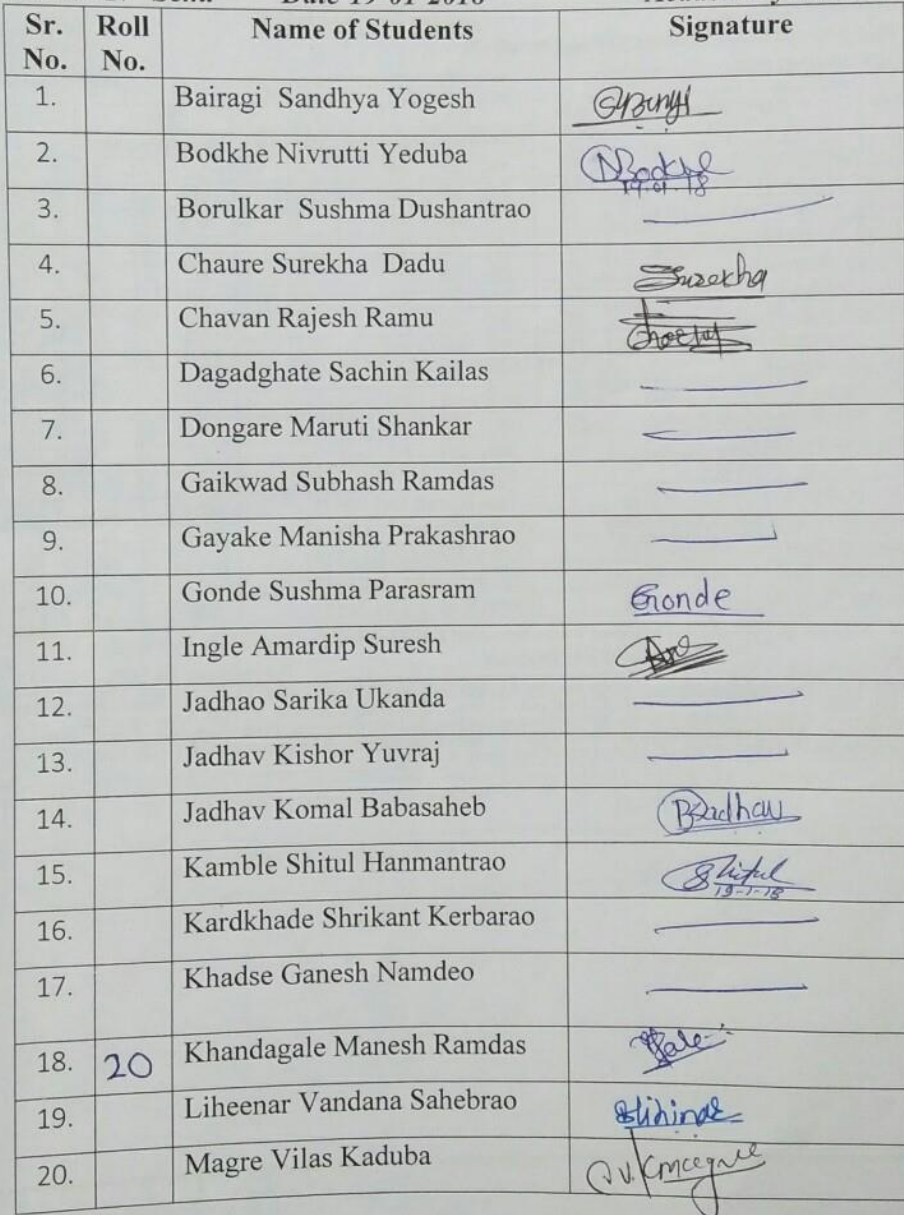 Date 19-01-2018
Sr. No. Roll No. Name of Students Signature
1. Bairagi Sandhya Yogesh
2. Bodkhe Nivrutti Yeduba NBodkhe
19.01.18
3. Borulkar Sushma Dushantrao
4. Chaure Surekha Dadu Surekha
5. Chavan Rajesh Ramu
6. Dagadghate Sachin Kailas
7. Dongare Maruti Shankar
8. Gaikwad Subhash Ramdas
9. Gayake Manisha Prakashrao
10. Gonde Sushma Parasram Gonde
11. Ingle Amardip Suresh
12. Jadhao Sarika Ukanda
13. Jadhav Kishor Yuvraj
14. Jadhav Komal Babasaheb
15. Kamble Shitul Hanmantrao Shitul
19-1-18
16. Kardkhade Shrikant Kerbarao
17. Khadse Ganesh Namdeo
18. 20 Khandagale Manesh Ramdas
19. Liheenar Vandana Sahebrao
20. Magre Vilas Kaduba